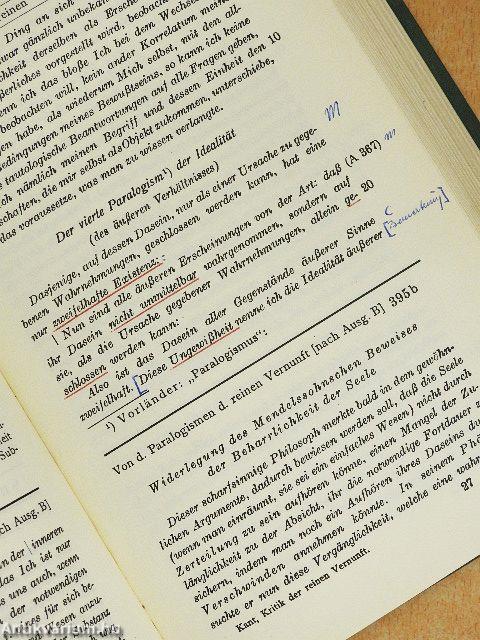 einen
Ding an sich
zwar gänzlich unbekan
lichkeit derselben als Ersche
ßerliches vorgestellt wird, beobac
enn ich das bloße Ich bei dem Wechse
beobachten will, kein ander Korrelatum mein
gen habe, als wiederum Mich selbst, mit den all-
Bedingungen meines Bewußtseins, so kann ich keine
s tautologische Beantwortungen auf alle Fragen geben,
ich nämlich meinen Begriff und dessen Einheit den 10
schaften, die mir selbst als Objekt zukommen, unterschiebe,
das voraussetze, was man zu wissen verlangte.
Der vierte Paralogism¹) der Idealität
(des äußeren Verhältnisses)
M
Dasjenige, auf dessen Dasein, nur als einer Ursache zu gege-
benen Wahrnehmungen, geschlossen werden kann, hat eine
nur zweifelhafte Existenz:
| Nun sind alle äußeren Erscheinungen von der Art: daß (A 367) m
ihr Dasein nicht unmittelbar wahrgenommen, sondern auf
sie, als die Ursache gegebener Wahrnehmungen, allein ge- 20
schlossen werden kann:
Also ist das Dasein aller Gegenstände äußerer Sinne
zweifelhaft. [Diese Ungewißheit nenne ich die Idealität äußerer
¹) Vorländer: „Paralogismus“;
Von d. Paralogismen d. reinen Vernunft [nach Ausg. B] 395 b
Widerlegung des Mendelssohnschen Beweises
der Beharrlichkeit der Seele
Dieser scharfsinnige Philosoph merkte bald in dem gewöhn-
lichen Argumente, dadurch bewiesen werden soll, daß die Seele
(wenn man einräumt, sie sei ein einfaches Wesen) nicht durch
Zerteilung zu sein aufhören könne, einen Mangel der Zu-
länglichkeit zu der Absicht, ihr die notwendige Fortdauer zu
sichern, indem man noch ein Aufhören ihres Daseins du
Verschwinden annehmen könnte. In seinem Phä
suchte er nun diese Vergänglichkeit, welche eine wahr
Kant, Kritik der reinen Vernunft. 27
heit
Sub-
ch Ausg. B]
n der | inneren
das Ich ist nur
es uns auch, wenn
der notwendigen
es für sich be-
Wesen anzu-
Antikvarium.hu